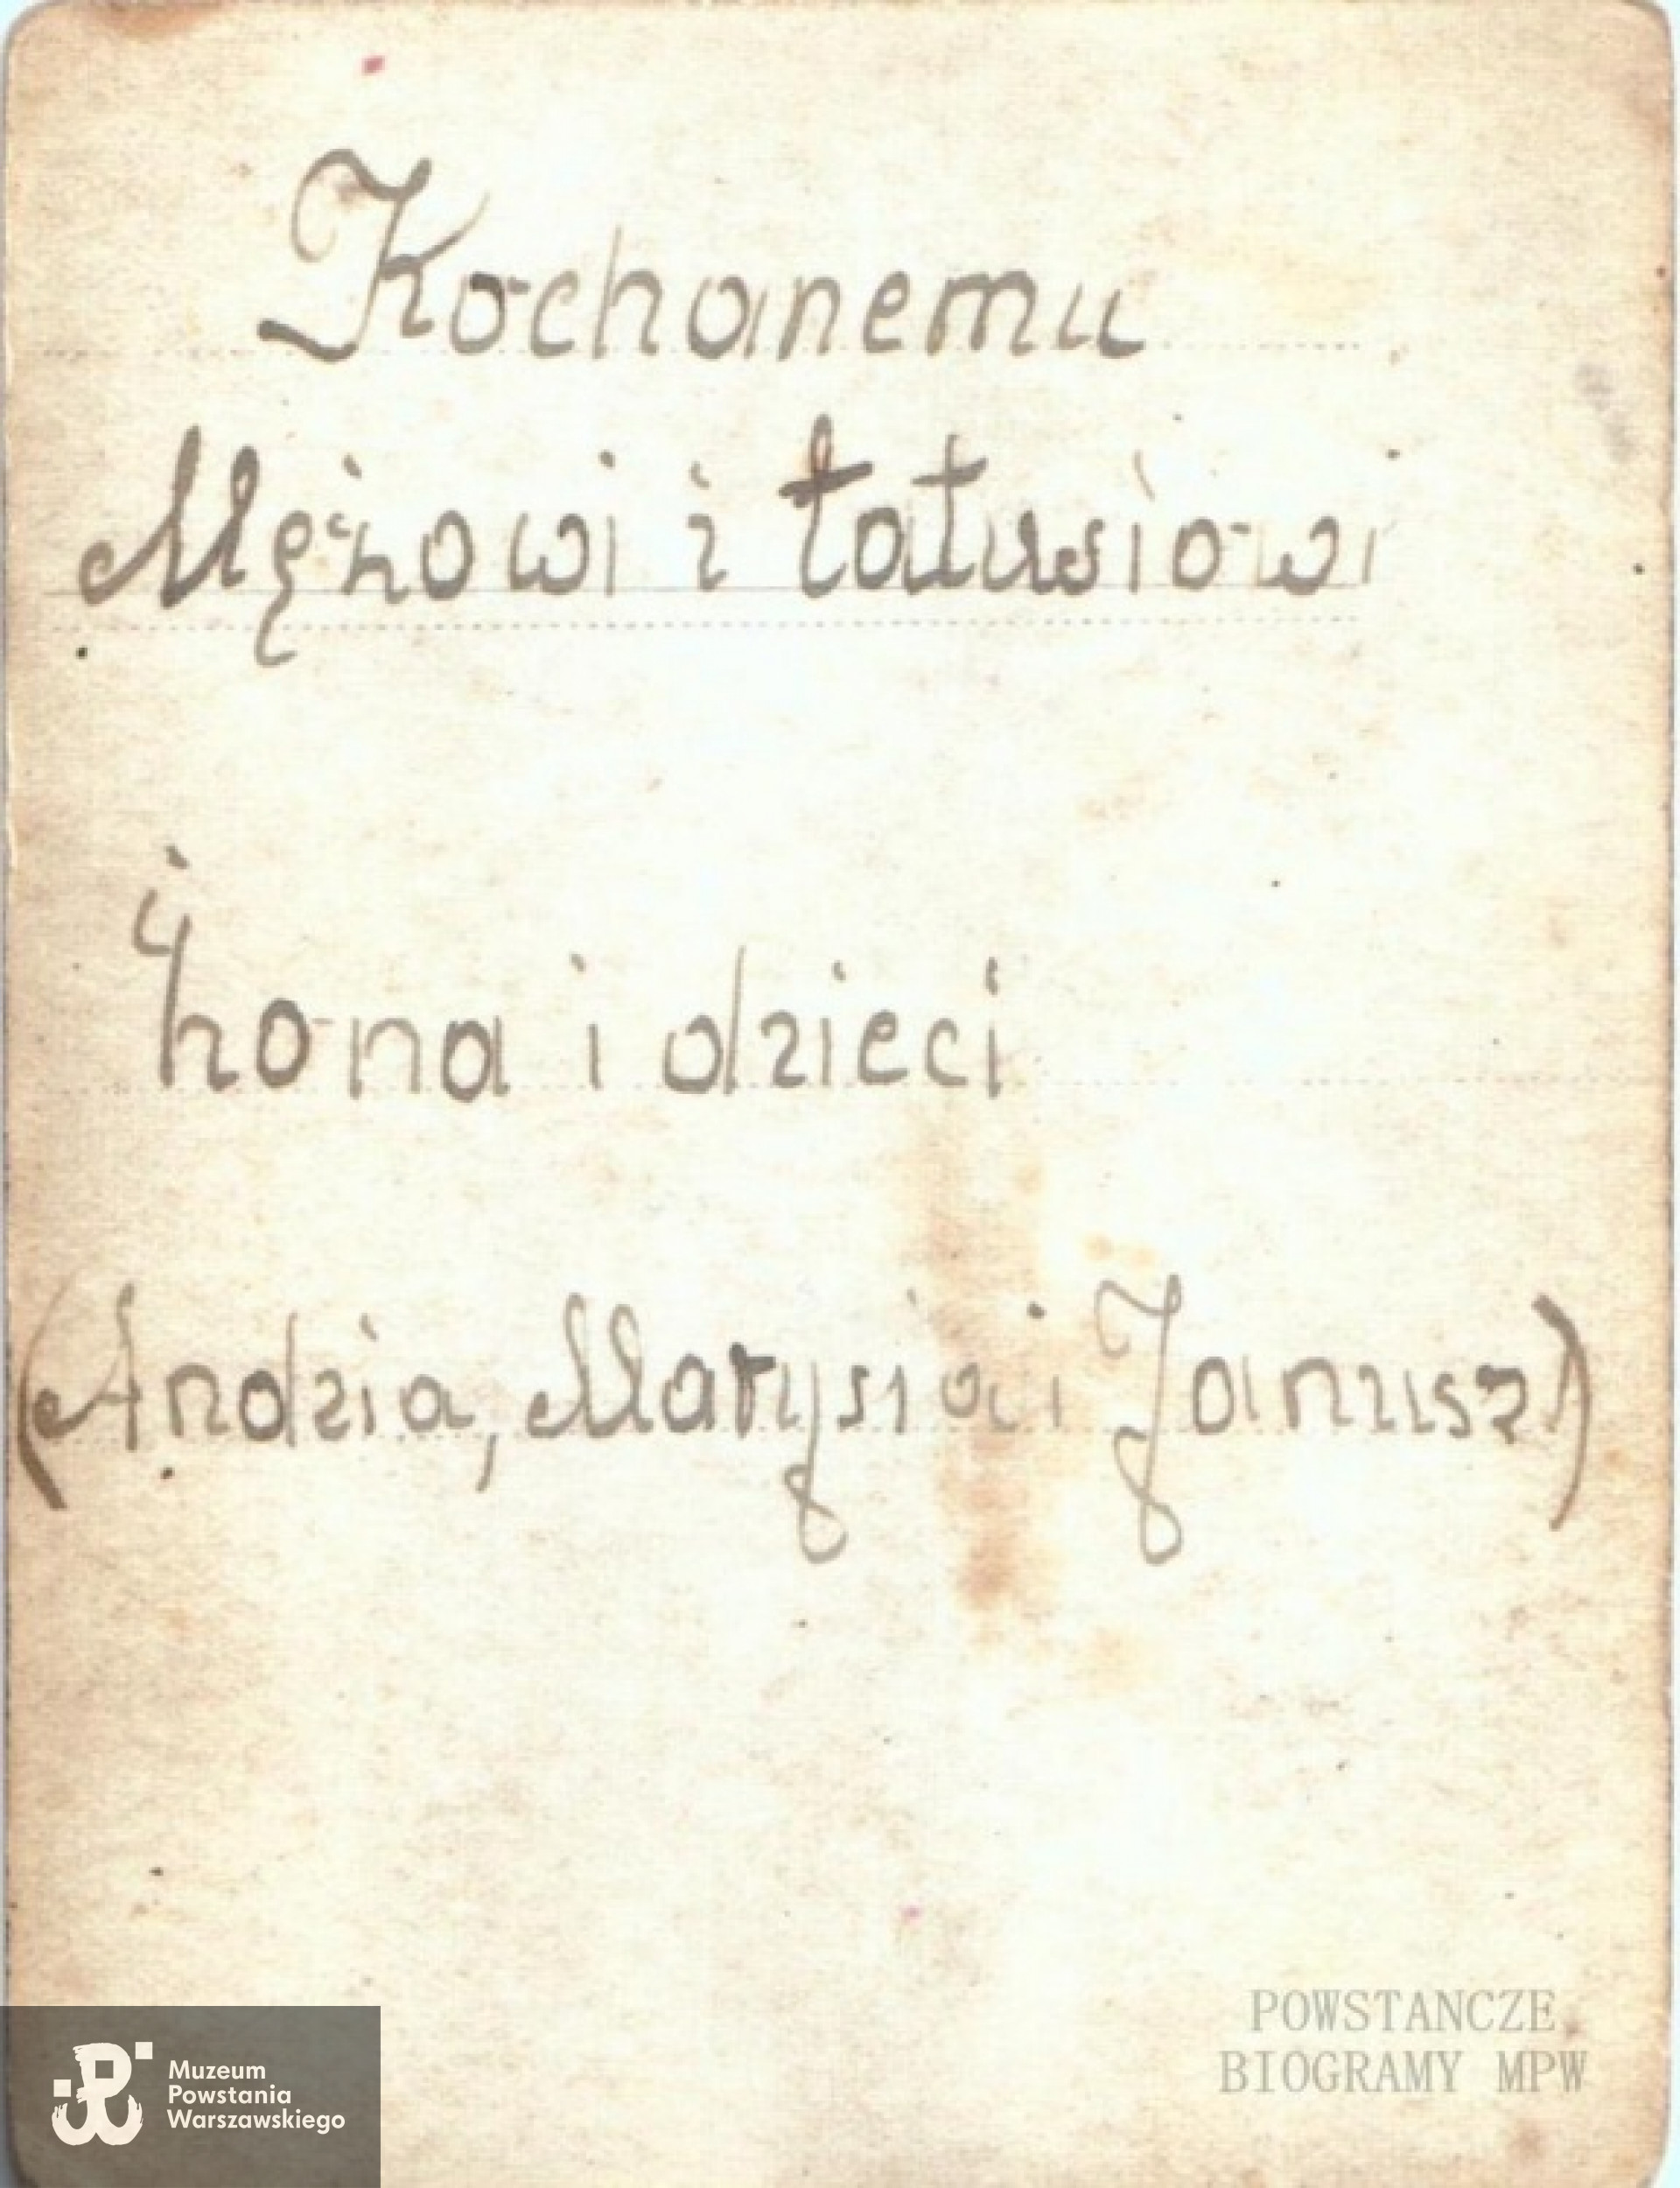 Kochanemu
Mężowi i tatusiowi
Żona i dzieci
(Andzia, Marysia i Janusz)
POWSTANCZE
BIOGRAMY MPW
Muzeum
Powstania
Warszawskiego